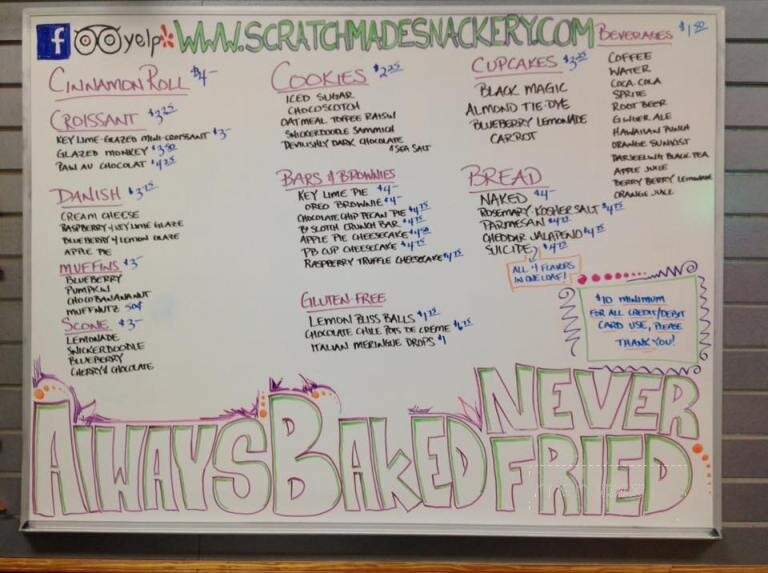 f yelp WWW.SCRATCHMADESNACKERY.COM
CINNAMON ROLL $4-
CROISSANT $3.25
KEY LIME-GLAZED MINI-CROISSANT $3-
GLAZED MONKEY $3.50
PAIN AU CHOCOLAT $4.25
DANISH
CREAM CHEESE
RASPBERRY & KEY LIME GLAZE
BLUEBERRY & LEMON GLAZE
APPLE PIE
MUFFINS $3-
BLUEBERRY
PUMPKIN
CHOCOBANANANUT
MUFFNUTZ 50¢
SCONE $3-
LEMONADE
SNICKERDOODLE
BLUEBERRY
CHERRY & CHOCOLATE
COOKIES $2.25
ICED SUGAR
CHOCOSCOTCH
OATMEAL TOFFEE RAISIN
SNICKERDOODLE SAMMICH
DEVILISHLY DARK CHOCOLATE
& SEA SALT
BARS & BROWNIES
KEY LIME PIE $4-
OREO BROWNIE $4-
CHOCOLATE CHIP PECAN PIE $4.75
B'SCOTCH CRUNCH BAR $4.75
APPLE PIE CHEESECAKE $4.50
PB CUP CHEESECAKE $4.75
RASPBERRY TRUFFLE CHEESECAKE $4.75
GLUTEN FREE
LEMON BLISS BALLS $1.75
CHOCOLATE CHILE POTS DE CREME $6.75
ITALIAN MERINGUE DROPS $1
CUPCAKES $3.25
BLACK MAGIC
ALMOND TIE-DYE
BLUEBERRY LEMONADE
CARROT
BREAD
NAKED $4-
ROSEMARY-KOSHER SALT $4.75
PARMESAN $4.75
CHEDDAR JALAPENO $4.75
SUICIDE $4.75
ALL 4 FLAVORS
IN ONE LOAF!
BEVERAGES $1.50
COFFEE
WATER
COCA COLA
SPRITE
ROOT BEER
GINGER ALE
HAWAIIAN PUNCH
ORANGE SUNKIST
DARJEELING BLACK TEA
APPLE JUICE
BERRY BERRY LEMONADE
ORANGE JUICE
$10 MINIMUM
FOR ALL CREDIT/DEBIT
CARD USE, PLEASE
THANK YOU!
ALWAYS BAKED NEVER FRIED